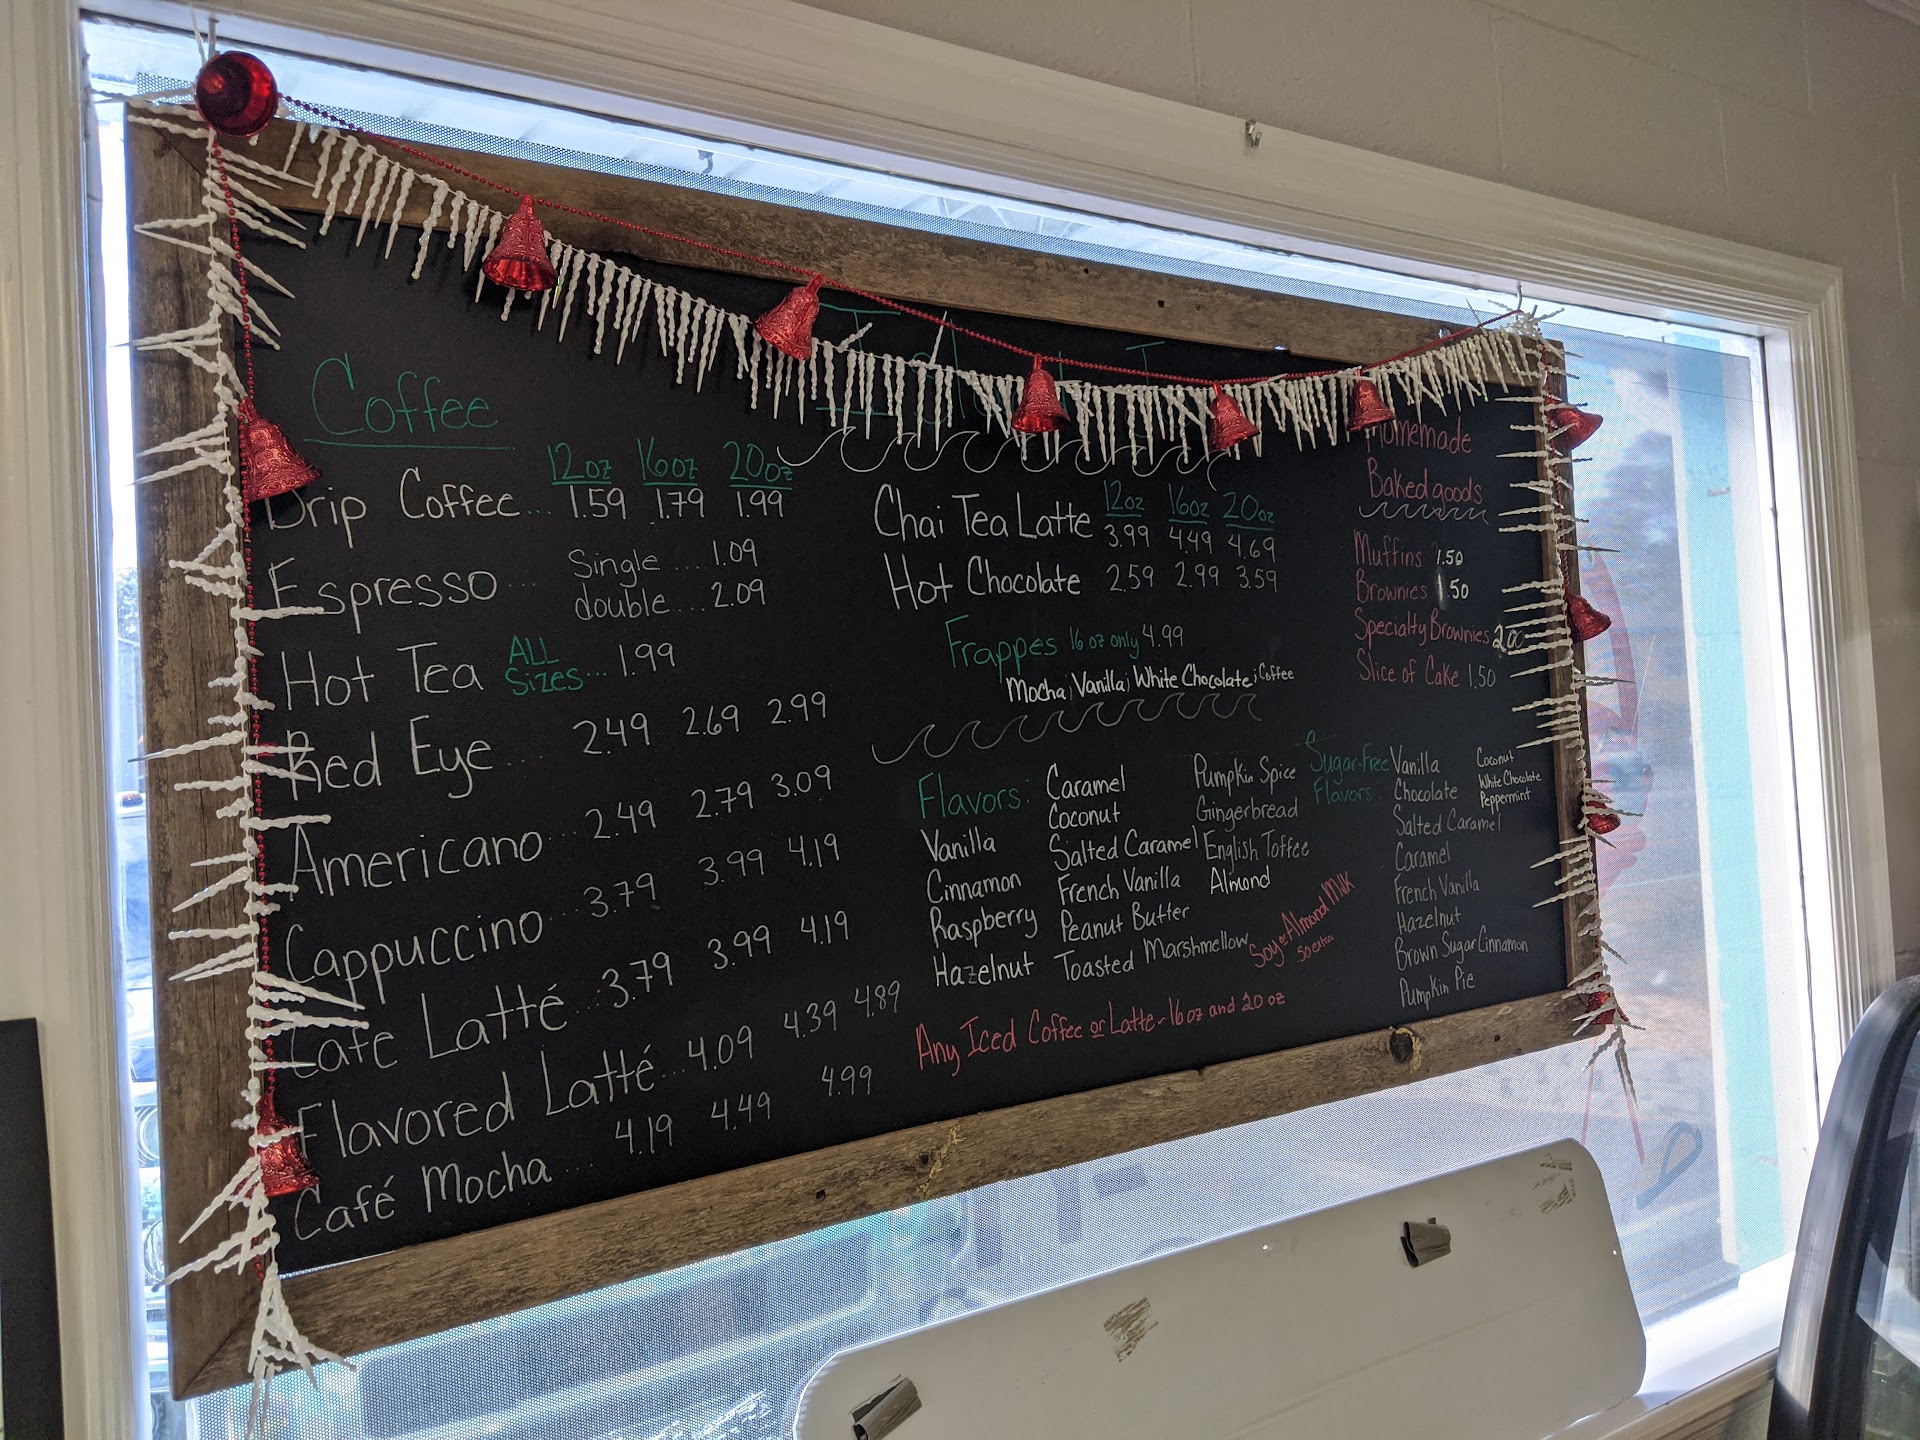 Coffee
12oz 16oz 20oz
Drip Coffee... 1.59 1.79 1.99
Espresso... Single....1.09
double....2.09
Hot Tea ALL Sizes... 1.99
Red Eye.... 2.49 2.69 2.99
Americano... 2.49 2.79 3.09
Cappuccino... 3.79 3.99 4.19
Cafe Latté... 3.79 3.99 4.19
Flavored Latté... 4.09 4.39 4.89
Café Mocha.... 4.19 4.49 4.99
12oz 16oz 20oz
Chai Tea Latte 3.99 4.49 4.69
Hot Chocolate 2.59 2.99 3.59
Frappes 16 oz only 4.99
Mocha; Vanilla; White Chocolate; Coffee
Flavors:
Vanilla
Cinnamon
Raspberry
Hazelnut
Caramel
Coconut
Salted Caramel
French Vanilla
Peanut Butter
Toasted Marshmellow
Pumpkin Spice
Gingerbread
English Toffee
Almond
Soy or Almond Milk
50 extra
Any Iced Coffee or Latte - 16 oz and 20 oz
Homemade
Baked goods
Muffins 1.50
Brownies 1.50
Specialty Brownies 2.00
Slice of Cake 1.50
Sugar-free
Flavors:
Vanilla
Chocolate
Salted Caramel
Caramel
French Vanilla
Hazelnut
Brown Sugar Cinnamon
Pumpkin Pie
Coconut
White Chocolate
Peppermint